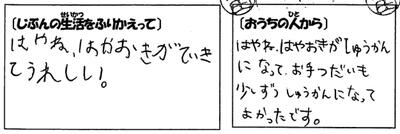 〔じぶんの生活をふりかえって〕
せいかつ
はやね、はやおきができ
てうれしい!
〔おうちの人から〕
ひと
はやね、はやおきがしゅうかん
になって、お手つだいも
少しずつしゅうかんになって
よかったです。